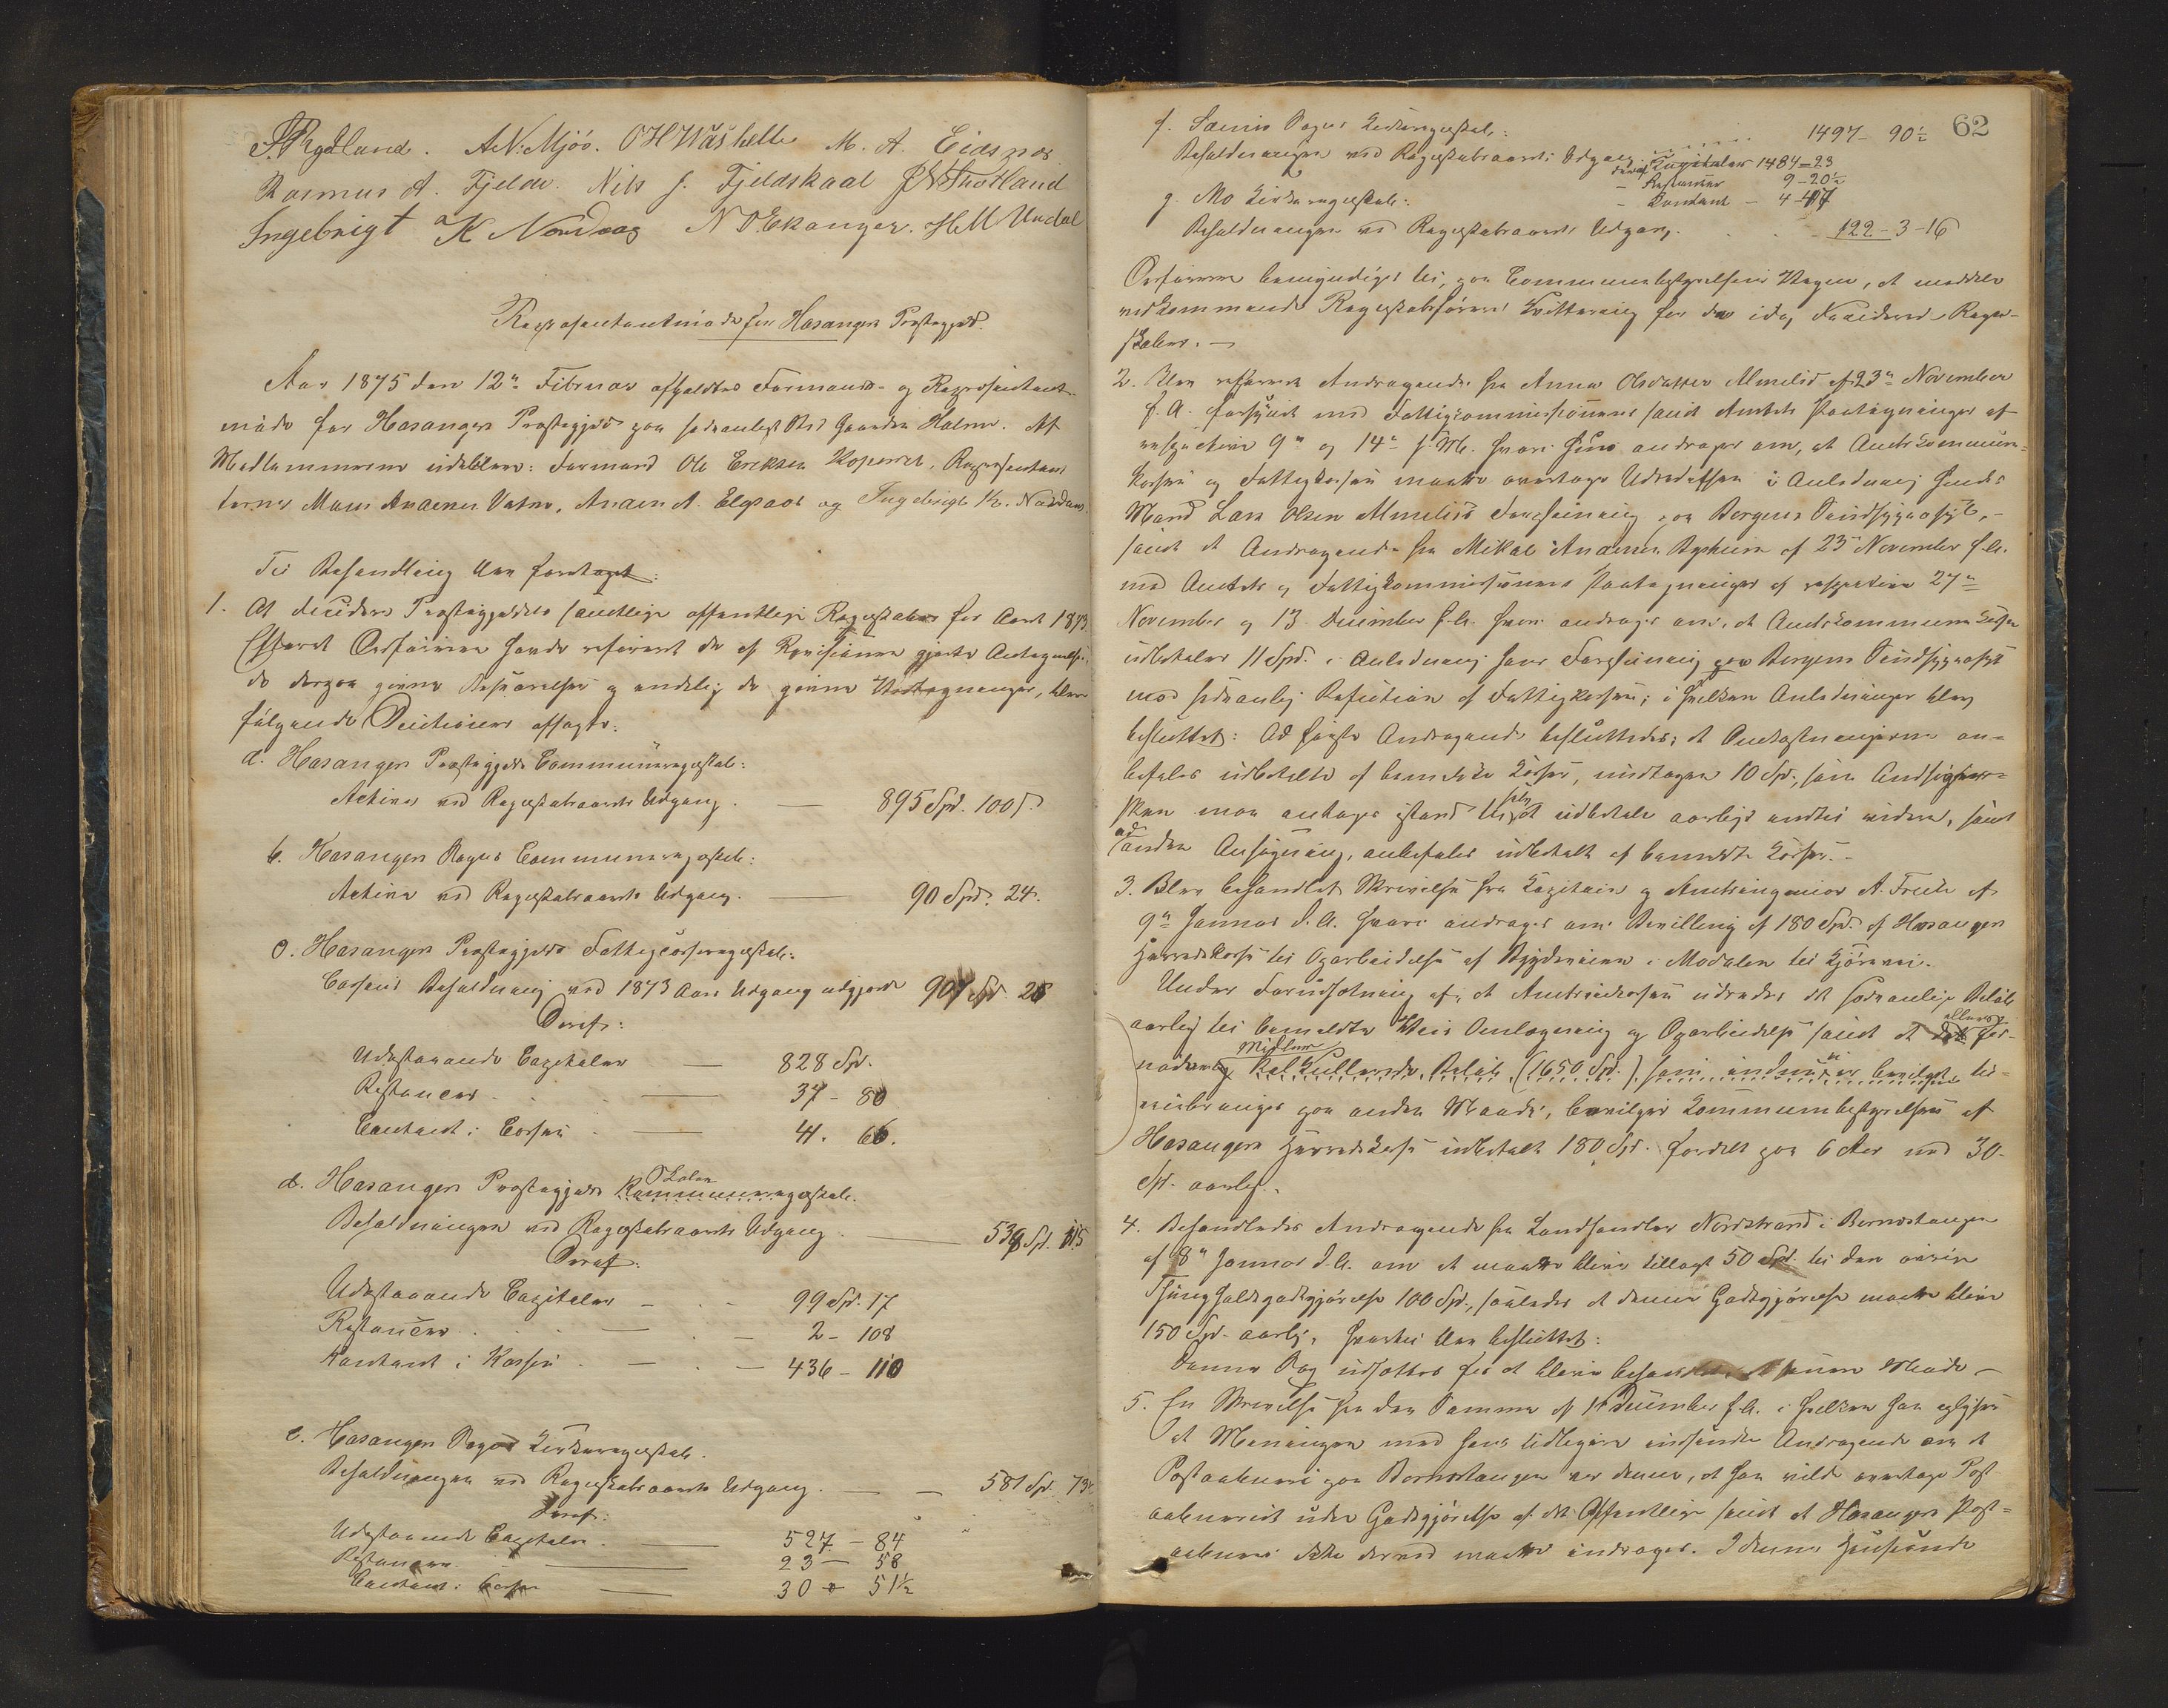 S. Rydland. A. N. Mjøs. O H Wåshelle M. A. Eidsnes
Rasmus A. Fjelde. Nils J. Fjeldskaal
Ingebrigt K Nordaas N O Ekanger. H M Undal
Repræsentantmøde for Hosanger Præstegjeld.
Aar 1875 den 12te Februar afholdtes Formands- og Repræsentant-
møde for Hosanger Præstegjeld paa sædvanligt Sted Gaarden Holme. Af
Medlemmerne udebleve: Formand Ole Eriksen Kopereid, Repræsentan-
terne Mons Andersen Vatne, Anders A. Elsaas og Ingebrigt K. Nordaas.
Til Behandling blev foretaget:
1. At decidere Præstegjeldets samtlige offentlige Regnskaber for Aaret 1873.
Efterat Ordføreren havde refereret de af Revisionen gjorte Antegnelser,
de derpaa givne Besvarelser og endelig de givne Paategninger, blev
følgende Decisioner afsagte:
a. Hosanger Præstegjelds Communeregnskab:
Activa ved Regnskabsaarets Udgang — 895 Spd. 100 s.
b. Hosanger Sogns Communeregnskab:
Activa ved Regnskabsaarets Udgang — 90 Spd. 24.
c. Hosanger Præstegjelds Fattigcasseregnskab:
Cassens Beholdning ved 1873 Aars Udgang udgjorde
Deraf:
Udestaaende Capitaler — 828 Spd.
Restancer — 37 - 80
Contant i Cassen — 41. 66.
d. Hosanger Præstegjelds Skole Kommuneregnskab.
Beholdningen ved Regnskabsaarets Udgang — 538 Spd. 115
Deraf:
Udestaaende Capitaler — 99 Spd. 17
Restancer — 2 - 108
Kontant i Kassen — 436 - 110
e. Hosanger Sogns Kirkeregnskab.
Beholdningen ved Regnskabsaarets Udgang — 581 Spd. 73½
Deraf:
Udestaaende Capitaler — 527 - 84
Restancer — 23 - 58
Contant i Cassen — 30 - 51½
62
f. Sæims Sogns Kirkeregnskab:
Beholdningen ved Regnskabsaarets Udgang 1497 - 90½
deraf Capitaler 1484 - 23
- Restancer 9 - 20½
- Kontant - 4 - 47
g. Mo Kirkeregnskab:
Beholdningen ved Regnskabsaarets Udgang. 122 - 3 - 16
Ordføreren bemyndiges til, paa Communebestyrelsens Vegne, at meddele
vedkommende Regnskabsførere Kvittering for de idag deciderede Regn-
skaber. —
2. Blev refereret Andragende fra Anna Olsdatter Almelid af 23de November
f. A. forsynet med Fattigcommissionens samt Amtets Paategninger af
respective 9de og 14de s. M. hvori hun andrager om, at Amtscommune-
kassen og Fattigkassen maatte overtage Udredelsen i Anledning hendes
Mand Lars Olsen Almelids Forpleining paa Bergens Sindsygeasyl, -
samt et Andragende fra Mikal Andersen Dyrhuus af 23de November f. A.
med Amtets og Fattigkommissionens Paategninger af respective 27de
November og 13 December f. A. hvori andrages om, at Amtskommunekassen
udbetaler 11 Spd. i Anledning hans Forpleining paa Bergens Sindsygeasyl
mod sædvanlig Refusion af Fattigkassen; i hvilken Anledninger blev
besluttet: Ad første Andragende besluttedes, at Omkostningerne an-
befales udbetalte af bemeldte Kasse, undtagen 10 Spd., som Andsøger-
sken maa antages istand til selv at udbetale aarligt indtil videre, samt
ad anden Ansøgning, anbefales udbetalt af bemeldte Kasse. -
3. Blev behandlet Skrivelse fra Capitain og Amtsingeniør A. Friele af
9de Januar d. A. hvori andrages om Bevilling af 180 Spd. af Hosanger
Herredskasse til Oparbeidelse af Bygdeveien i Modalen til Kjørevei.
Under Forudsætning af, at Amtsveikassen udreder det sædvanlige Beløb
aarlig til bemeldte Veis Omlægning og Oparbeidelse samt at det ellers for-
nødne Midler kalkullerede Beløb (1650 Spd.) som endnu ei er bevilget til-
veiebringes paa anden Maade, bevilger Kommunebestyrelsen af
Hosanger Herredskasse udbetalt 180 Spd. fordelt paa 6 Aar med 30
Spd. aarlig.
4. Behandledes Andragende fra Landhandler Nordstrand i Bernestangen
af 8de Januar d. A. om at maatte blive tillagt 50 Spd. til den
Thinghuldsgodtgjørelse 100 Spd., saaledes at denne Godtgjørelse maatte blive
150 Spd. aarlig, hvortil blev besluttet:
Denne Sag udsættes for at blive behandlet senere Møde -
5. En Skrivelse fra den Samme af December f. A. i hvilken han oplyser
at Meningen med hans tidligere indsendte Andragende om et
Postaabneri paa Bernestangen var denne, at han vilde overtage Post-
aabneriet uden Godtgjørelse af det Offentlige samt at Hosanger Post-
aabneri ikke derved maatte inddrages. I denne Henseende